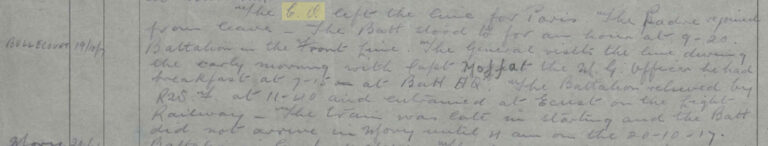 "The C.O. left the line for Paris "The Padre rejoined
from leave — The Batt stood to for an hour at 9-20.
BULLECOURT 19/10/17 Battalion in the Front Line. "The General visits the line during
the early morning with Capt Moffat the M.G. Officer he had
breakfast at 9-15 — at Batt HQ" "The Battalion relieved by
R2S.F. at 11-40 and entrained at Ecust on the Light
Railway — "The train was late in starting and the Batt
did not arrive in Mory until 4 am on the 20-10-17.
Mory